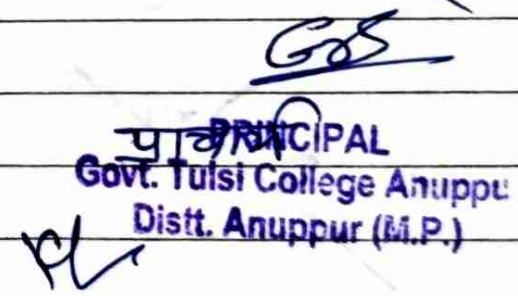 प्राचार्य
PRINCIPAL
Govt. Tulsi College Anuppu
Distt. Anuppur (M.P.)